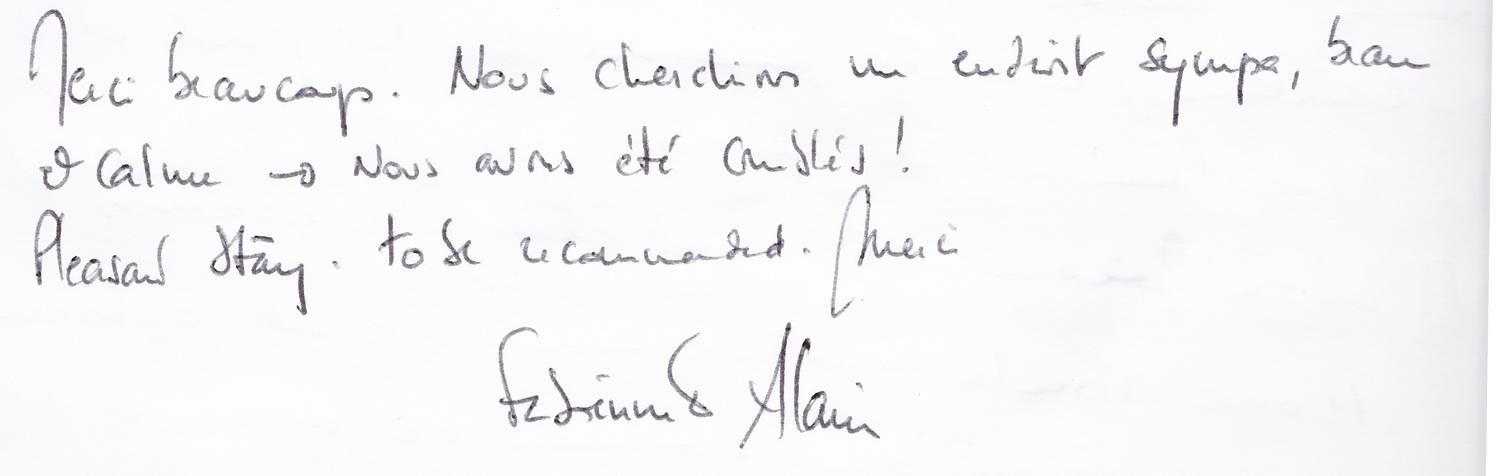 Merci beaucoup. Nous cherchions un endroit sympa, beau
et calme → Nous avons été comblés !
Pleasant stay. to be recommended. Merci
Fabienne & Alain